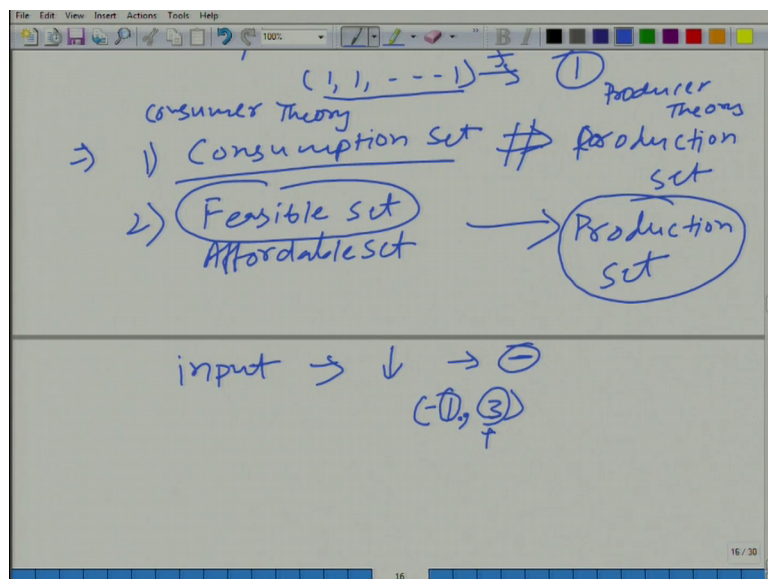 File Edit View Insert Actions Tools Help
100%
B I
(1, 1, - - - 1) → ①
Consumer Theory
Producer Theory
⇒ 1) Consumption set ⇏ production set
2) Feasible set → Production set
Affordable set
input → ↓ → ⊖
(-1, 3)
16 / 30
16